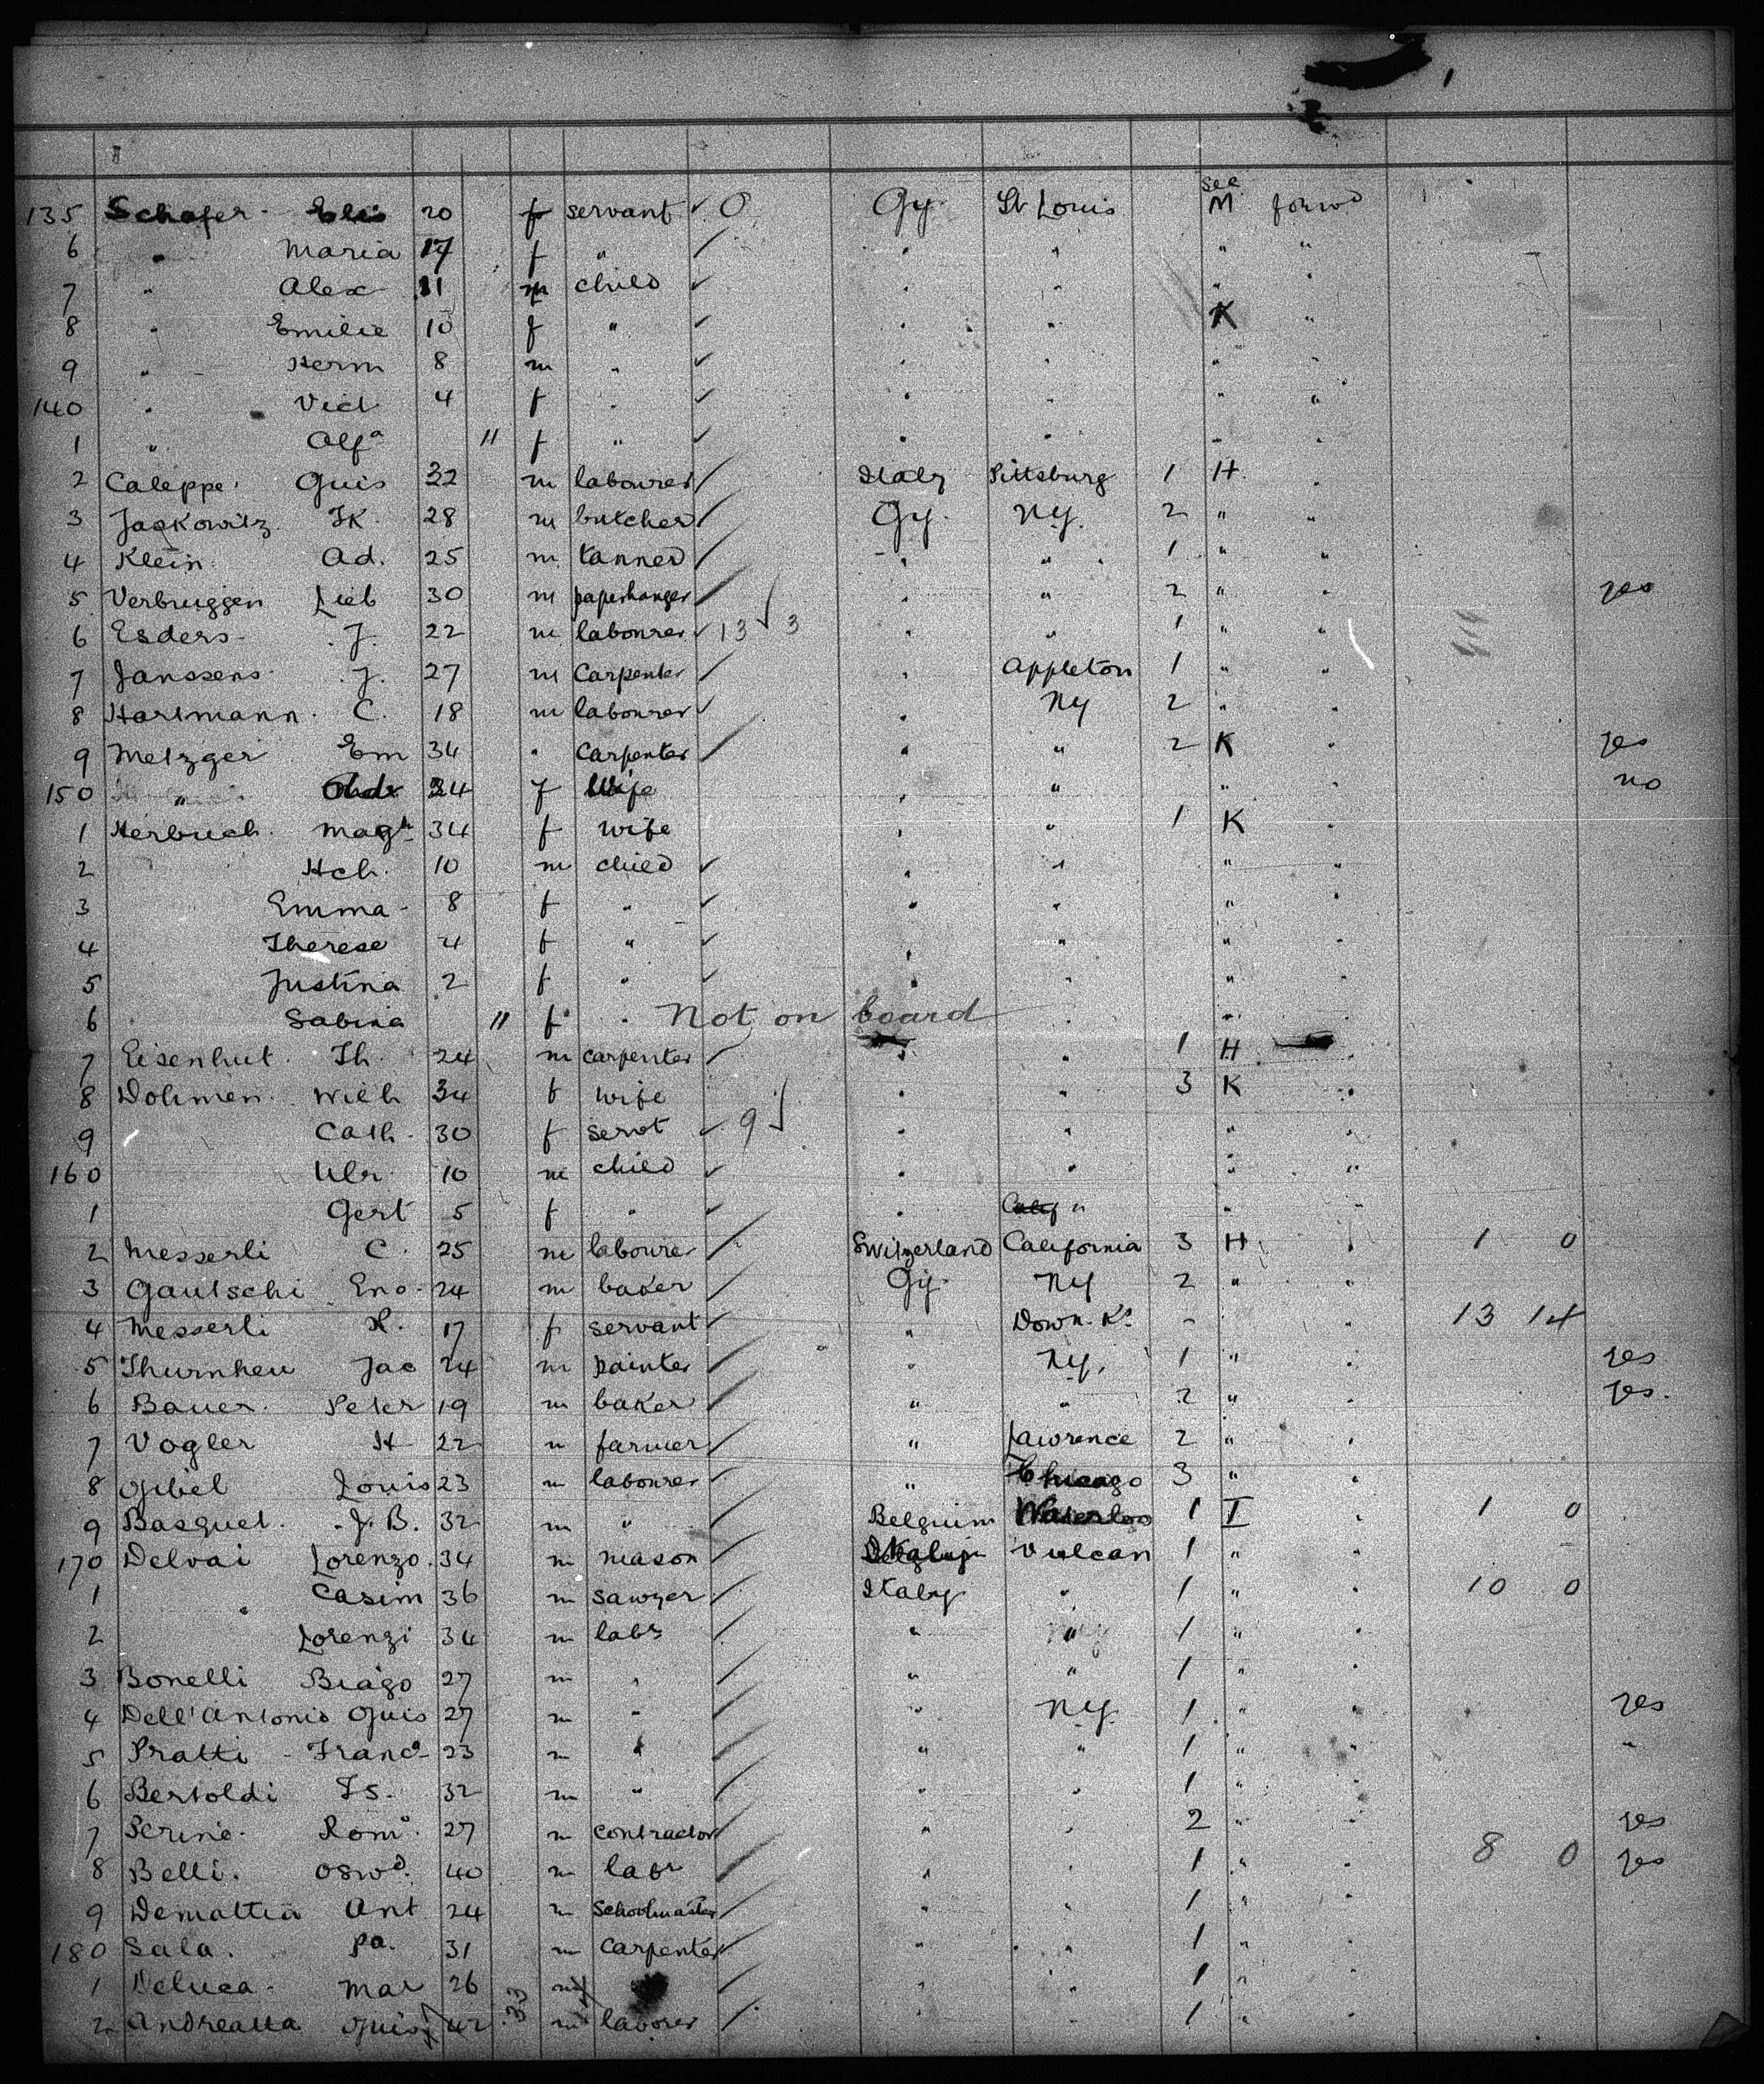 see
135 Schafer - Elis 20 f servant ✓ O Gy. St Louis M forwd
6 " Maria 17 f " ✓ " " " "
7 " Alex 11 m child ✓ " " " "
8 " Emilie 10 f " ✓ " " K "
9 " Herm 8 m " ✓ " " " "
140 " Vict 4 f " ✓ " " " "
1 " Olga " f " ✓ " " " "
2 Caleppe Guis 32 m labourer Italy Pittsburg 1 H "
3 Jackowitz JK. 28 m butcher Gy. NY. 2 " "
4 Klein Ad. 25 m tanner " " 1 " "
5 Verbruggen Lieb 30 m paperhanger " " 2 " " yes
6 Esders J. 22 m labourer ✓ 13 √ 3 " " 1 " "
7 Janssens J. 27 m Carpenter " Appleton 1 " "
8 Hartmann C. 18 m labourer ✓ " NY 2 " "
9 Metzger Em 34 " Carpenter " " 2 K " yes
150 " 24 f Wife " " " no
1 Herbuch Magh 34 f wife " " 1 K "
2 Hch. 10 m child ✓ " " " "
3 Emma - 8 f " ✓ " " " "
4 Therese 4 f " ✓ " " " "
5 Justina 2 f " ✓ " " " "
6 Sabina " f " Not on board " " "
7 Eisenhut Th. 24 m carpenter " " 1 H "
8 Dohmen Wilh 34 f wife " " 3 K "
9 Cath. 30 f servt ✓ 9 √ " " " "
160 Ulr 10 m child ✓ " " " "
1 Gert 5 f " ✓ " " " "
2 Messerli C. 25 m labourer Switzerland California 3 H " 1 0
3 Gautschi Eno. 24 m baker Gy. NY 2 " "
4 Messerli R. 17 f servant " Down. Ks - " 13 14
5 Thurnheu Jac 24 m painter " NY. 1 " " yes
6 Bauer Peter 19 m baker " " 2 " " yes.
7 Vogler H 22 m farmer " Lawrence 2 " "
8 Gibel Louis 23 m labourer " Chicago 3 " "
9 Basquet J. B. 32 m " Belgium Waterloo 1 I " 1 0
170 Delvai Lorenzo. 34 m mason Vulcan 1 " "
1 " Casim 36 m sawyer Italy " 1 " " 10 0
2 Lorenzi 34 m labr " " 1 " "
3 Bonelli Biago 27 m " " " 1 " "
4 Dell'Antonio Guis 27 m " " NY. 1 " " yes
5 Pratti - Franc 23 m " " " 1 " " "
6 Bertoldi Is. 32 m " " " 1 " "
7 Serine Romo. 27 m contractor " " 2 " " yes
8 Belli. Oswd. 40 m labr " " 1 " " 8 0 yes
9 Demattia Ant 24 m Schoolmaster " " 1 " "
180 Sala. Pa. 31 m Carpenter " " 1 " "
1 Deluca - Mar 26 m " " 1 " "
2 Andreatta Guis 42 33 m laborer " " 1 " "